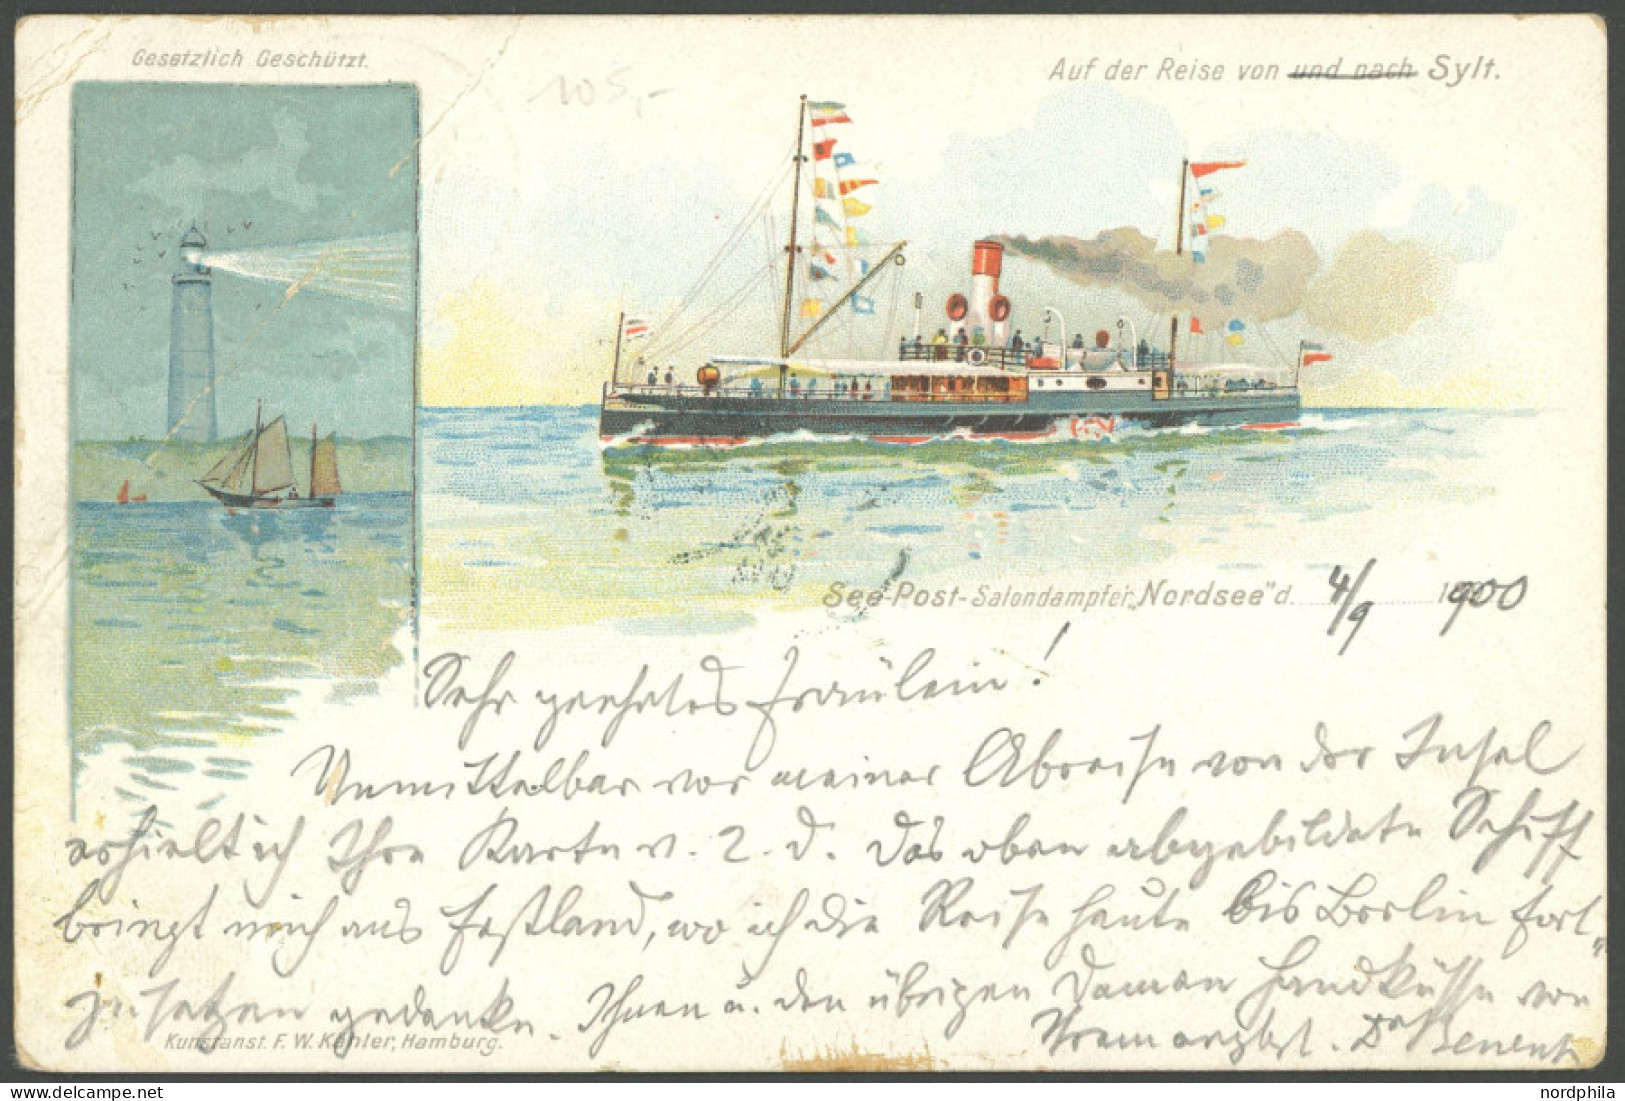 Gesetzlich Geschützt.
105,-
Auf der Reise von und nach Sylt.
See-Post-Salondampfer „Nordsee" d. 4/9 1900
Sehr geehrtes Fräulein!
Unmittelbar vor meiner Abreise von der Insel
erhielt ich Ihre Karte v. 2. d. Das oben abgebildete Schiff
bringt mich ans Festland, wo ich die Reise heute bis Berlin fort-
zusetzen gedenke. Ihnen u. den übrigen Damen Handküsse von
Ihrem ergbst. Dr
Kunstanst. F. W. Kähler, Hamburg.
nordphila